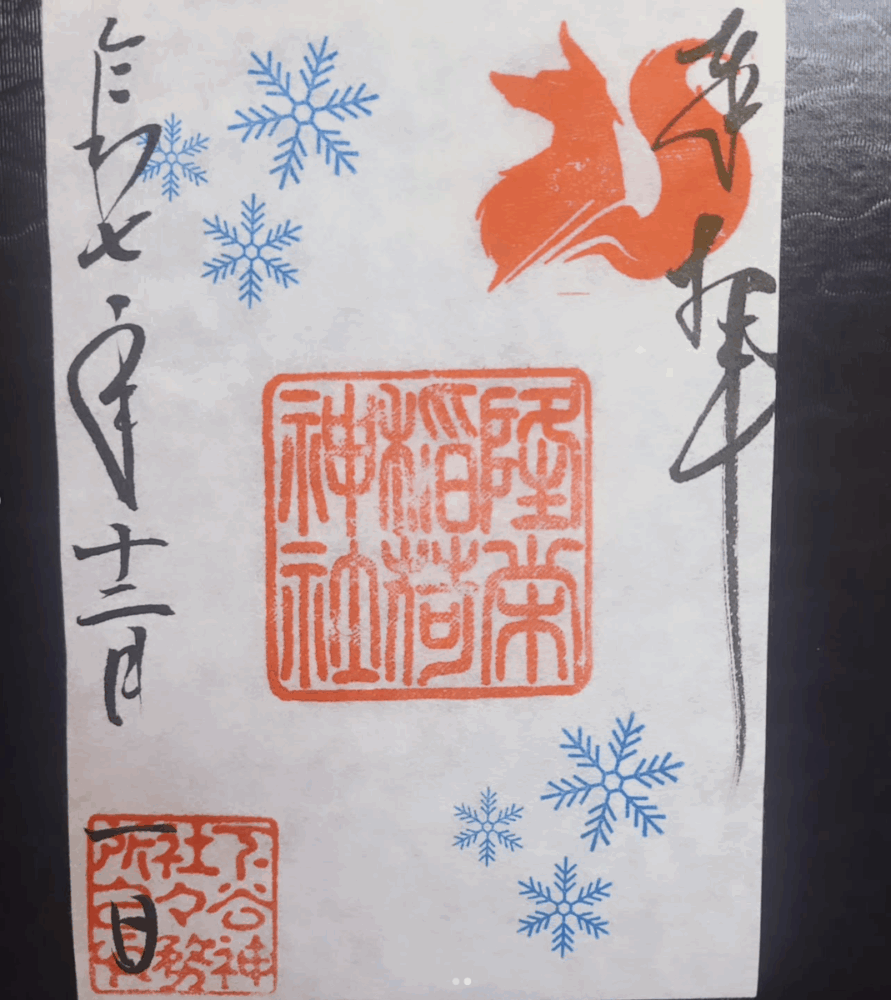 奉拝
隆栄
稲荷
神社
令和七年十二月一日
下谷神
社々務
所